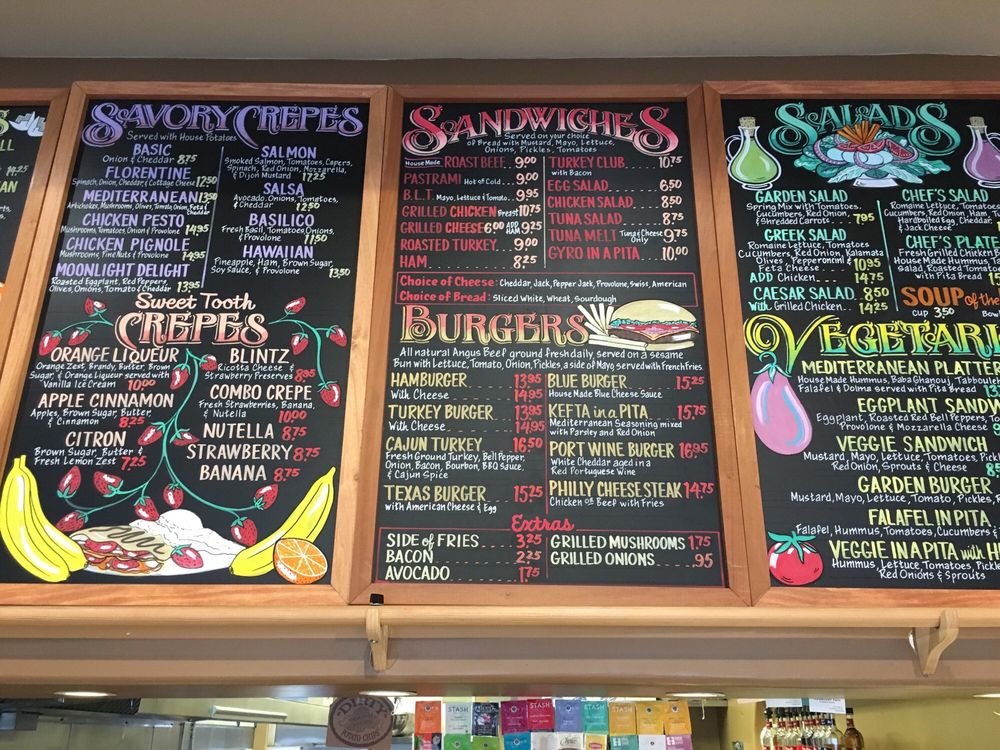 S
LL
14.25
AN
SAVORY CREPES
Served with House Potatoes
BASIC
Onion & Cheddar 8.75
FLORENTINE
Spinach, Onion, Cheddar, & Cottage Cheese 12.50
MEDITERRANEAN 13.50
Artichokes, Mushrooms, Olives, Tomato, Onion, Feta & Cheddar
CHICKEN PESTO
Mushrooms, Tomatoes, Onion & Provolone 14.95
CHICKEN PIGNOLE
Mushrooms, Pine Nuts & Provolone 14.95
MOONLIGHT DELIGHT
Roasted Eggplant, Red Peppers,
Olives, Onions, Tomato & Cheddar 13.95
SALMON
Smoked Salmon, Tomatoes, Capers,
Spinach, Red Onion, Mozzarella,
& Dijon Mustard 17.25
SALSA
Avocado, Onions, Tomatoes,
& Cheddar 12.50
BASILICO
Fresh Basil, Tomatoes, Onions,
& Provolone 11.50
HAWAIIAN
Pineapple, Ham, Brown Sugar,
Soy Sauce, & Provolone 13.50
Sweet Tooth
CREPES
ORANGE LIQUEUR
Orange Zest, Brandy, Butter, Brown
Sugar, & Orange Liqueur served with
Vanilla Ice Cream 10.00
APPLE CINNAMON
Apples, Brown Sugar, Butter,
& Cinnamon 8.25
CITRON
Brown Sugar, Butter &
Fresh Lemon Zest 7.25
BLINTZ
Ricotta Cheese &
Strawberry Preserves 8.95
COMBO CREPE
Fresh Strawberries, Banana,
& Nutella 10.00
NUTELLA 8.75
STRAWBERRY 8.75
BANANA 8.75
SANDWICHES
Served on your choice
of Bread with Mustard, Mayo, Lettuce,
Onions, Pickles, Tomatoes
House Made ROAST BEEF 9.00
PASTRAMI Hot or Cold 9.00
B.L.T. Mayo, Lettuce & Tomato 9.95
GRILLED CHICKEN Breast 10.75
GRILLED CHEESE 6.00 ADD HAM 9.25
ROASTED TURKEY 9.00
HAM 8.25
TURKEY CLUB 10.75
with Bacon
EGG SALAD 6.50
CHICKEN SALAD 8.50
TUNA SALAD 8.75
TUNA MELT Tuna & Cheese Only 9.75
GYRO IN A PITA 10.00
Choice of Cheese: Cheddar, Jack, Pepper Jack, Provolone, Swiss, American
Choice of Bread: Sliced White, Wheat, Sourdough
BURGERS
All natural Angus Beef ground fresh daily, served on a sesame
Bun with Lettuce, Tomato, Onion, Pickles, a side of Mayo, served with French Fries
HAMBURGER 13.95
With Cheese 14.95
TURKEY BURGER 13.95
With Cheese 14.95
CAJUN TURKEY 16.50
Fresh Ground Turkey, Bell Pepper,
Onion, Bacon, Bourbon, BBQ Sauce,
& Cajun Spice
TEXAS BURGER 15.25
with American Cheese & Egg
BLUE BURGER 15.25
House Made Blue Cheese Sauce
KEFTA in a PITA 15.75
Mediterranean Seasoning mixed
with Parsley and Red Onion
PORT WINE BURGER 16.95
White Cheddar aged in a
Red Portuguese Wine
PHILLY CHEESE STEAK 14.75
Chicken or Beef with Fries
Extras
SIDE of FRIES 3.25
BACON 2.25
AVOCADO 1.75
GRILLED MUSHROOMS 1.75
GRILLED ONIONS .95
SALADS
GARDEN SALAD
Spring Mix with Tomatoes,
Cucumbers, Red Onion,
& Shredded Carrots 7.95
GREEK SALAD
Romaine Lettuce, Tomatoes
Cucumbers, Red Onion, Kalamata
Olives, Pepperoncini &
Feta Cheese 10.95
ADD Chicken 14.75
CAESAR SALAD 8.50
With Grilled Chicken 14.25
CHEF'S SALAD
Romaine Lettuce, Tomatoes
Cucumbers, Red Onion, Ham, T
Hardboiled Egg, Cheddar,
& Jack Cheese
CHEF'S PLATE
Fresh Grilled Chicken B
House Made Hummus, Ta
Salad, Roasted Tomato
with Pita Bread 15
SOUP of the
cup 3.50 Bowl
VEGETARI
MEDITERRANEAN PLATTER
House Made Hummus, Baba Ghanouj, Tabbouleh
Falafel & Dolma served with Pita Bread 13
EGGPLANT SANDW
Eggplant, Roasted Red Bell Peppers, To
Provolone & Mozzarella Cheese 9
VEGGIE SANDWICH
Mustard, Mayo, Lettuce, Tomato, Pickl
Red Onion, Sprouts & Cheese 8
GARDEN BURGER
Mustard, Mayo, Lettuce, Tomato, Pickles, R
FALAFEL IN PITA
Falafel, Hummus, Tomatoes, Cucumbers &
VEGGIE IN A PITA with H
Hummus, Lettuce, Tomatoes, Pickle
Red Onions & Sprouts
POTATO CHIPS
STASH
STASH
STASH